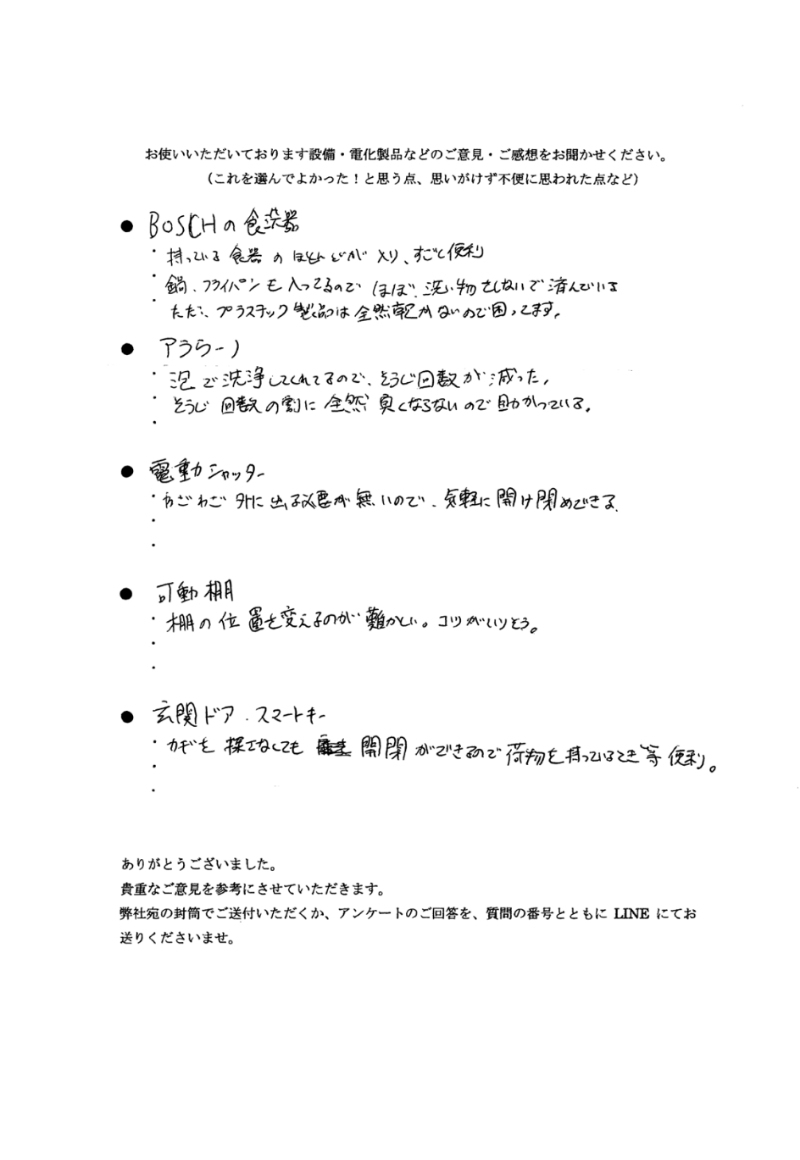 お使いいただいております設備・電化製品などのご意見・ご感想をお聞かせください。
(これを選んでよかった！と思う点、思いがけず不便に思われた点など)
● BOSCHの食洗器
・持っている食器のほとんどが入り、すごく便利
・鍋、フライパンも入ってるので ほぼ、洗い物をしないで済んでいる
・ただ、プラスチック製品は全然乾かないので困ってます。
● アラウーノ
・泡で洗浄してくれてるので、そうじ回数が減った。
・そうじ回数の割に全然臭くならないので助かっている。
・
● 電動シャッター
・わざわざ外に出る必要が無いので、気軽に開け閉めできる。
・
・
● 可動棚
・棚の位置を変えるのが難かしい。コツがいりそう。
・
・
● 玄関ドア・スマートキー
・カギを探さなくても 開閉ができるので荷物を持っているとき等便利。
・
・
ありがとうございました。
貴重なご意見を参考にさせていただきます。
弊社宛の封筒でご送付いただくか、アンケートのご回答を、質問の番号とともに LINE にてお
送りくださいませ。